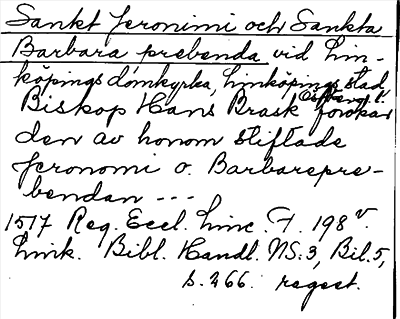 Sankt Jeronimi och Sankta
Barbara prebenda vid Lin-
köpings domkyrka, Linköpings stad
Biskop Hans Brask förökar
den av honom stiftade
Jeronomi o. Barbarepre-
bendan ---
1517 Reg. Eccl. Linc. F. 198 v.
Link. Bibl. Handl. NS: 3, Bil. 5,
s. 266. regest.